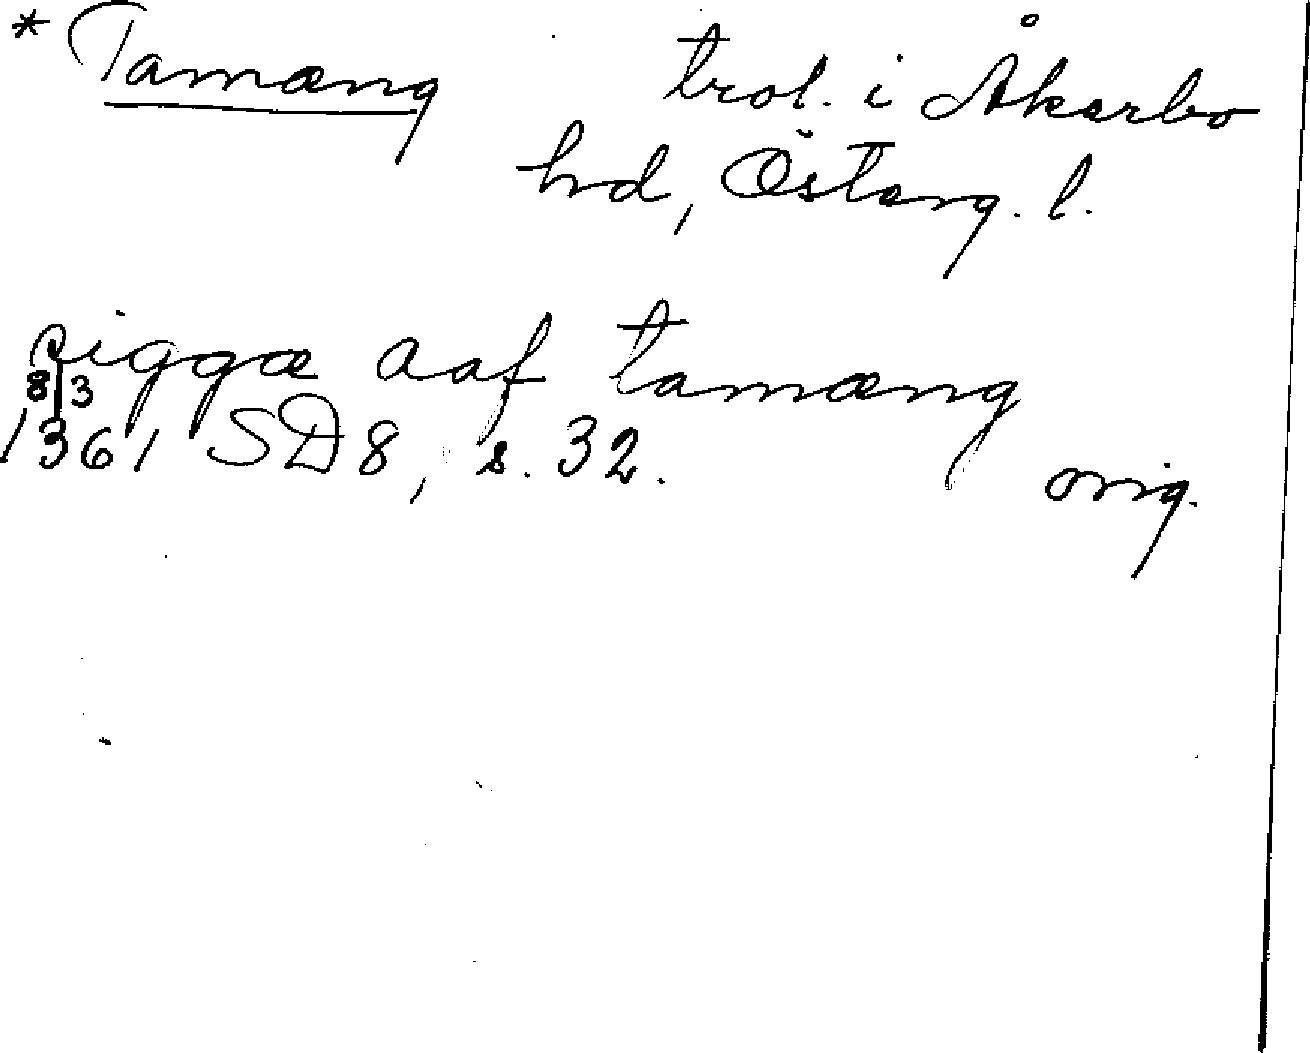 * Tamæng trol. i Åkerbo
hd, Österg. l.
siggæ aaf tamæng
8/3
1361 SD 8, s. 32.
orig.